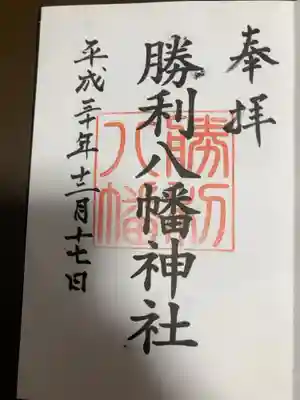 奉拝
勝利八幡神社
平成三十年十二月十七日